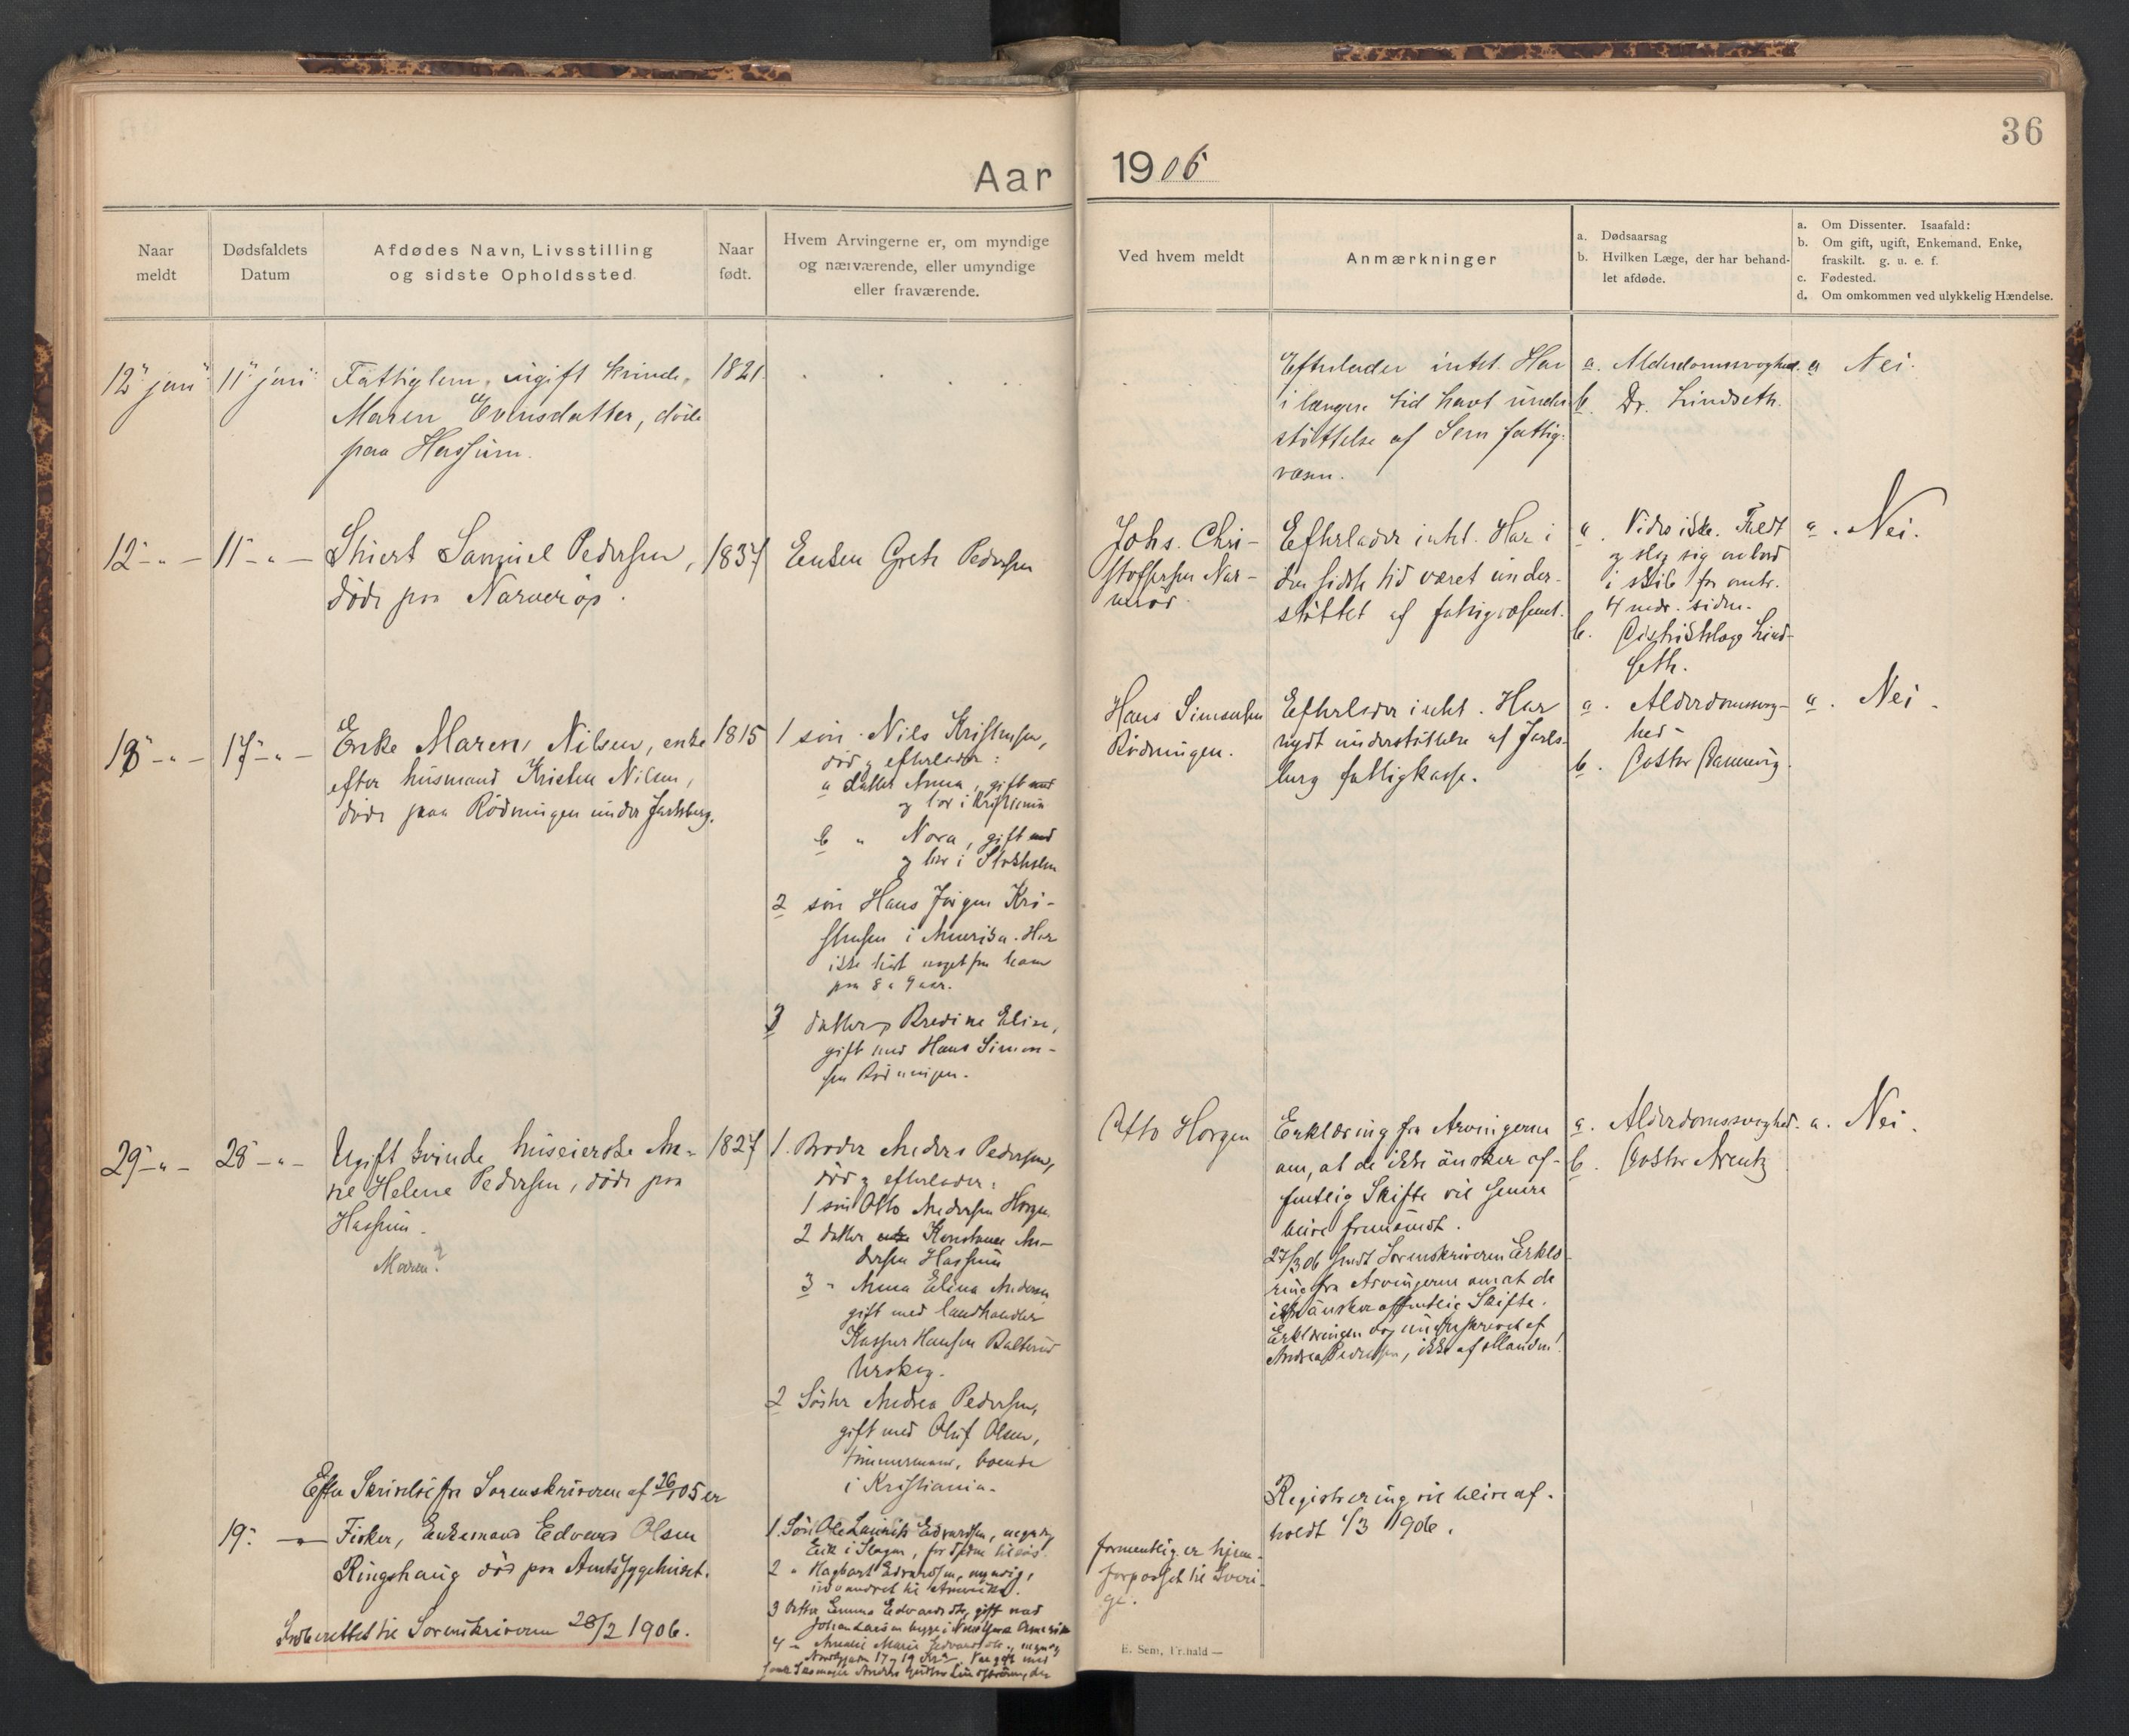 36
Aar 1906
Naar
meldt
Dødsfaldets
Datum
Afdødes Navn, Livsstilling
og sidste Opholdssted
Naar
født.
Hvem Arvingerne er, om myndige
og nærværende, eller umyndige
eller fraværende.
Ved hvem meldt
Anmærkninger
a. Dødsaarsag
b. Hvilken Læge, der har behand-
let afdøde.
a. Om Dissenter. Isaafald:
b. Om gift, ugift, Enkemand. Enke,
fraskilt. g. u. e. f.
c. Fødested.
d. Om omkommen ved ulykkelig Hændelse.
12 jan 11 jan Fattiglem, ugift kvinde,
Maren Evensdatter, døde
paa Hassum.
1821
Efterlader intet. Har
i længere tid havt under-
støttelse af Sem fattig-
væsen.
a. Alderdomssvaghed.
b. Dr. Lindseth.
a Nei.
12 - " - 11 - " - Samuel Pedersen,
døde paa Narverød.
1837
Enken Grete Pedersen
Johs. Chri-
stoffersen Nar-
verød
Efterlader intet. Har i
den sidste tid været under-
støttet af fattigvæsenet.
a. Vides ikke. Faldt
og slog sig ombord
i skib for omtr.
4 mdr. siden.
b. Distriktslæge Lind-
seth.
a. Nei.
18 - " - 17 - " - Enke Maren Nilsen, enke
efter husmand Kristen Nilsen,
døde paa Rødningen under Jarlsberg.
1815
1 søn Nils Kristensen,
død og efterlader:
a datter Anna, gift
og bor i Kristiania
b " Nora, gift
og bor i Stokholm
2 søn Hans Jørgen Kri-
stensen i Amerika. Har
ikke hørt noget fra ham
paa 8 a 9 aar.
3 datter Bredine Elise,
gift med Hans Simon-
sen Rødningen.
Hans Simonsen
Rødningen.
Efterlader intet. Har
nydt understøttelse af Jarls-
berg fattigkasse.
a. Alderdomssvag-
hed
b. Doktor Dannevig.
a. Nei.
29 - " - 28 - " - Ugift kvinde huseierske An-
ne Helene Pedersen, døde paa
Hassum.
Maren?
1827
1. Broder Anders Pedersen,
død og efterlader:
1 søn Otto Andersen Horgen
2 datter Konstance An-
dersen Hassum
3 " Anna Elina Andersen
gift med landhandler
Kasper Hansen
Urskog.
2 Søster Andrea Pedersen,
gift med Oluf Olsen,
tømmermand, boende
i Kristiania.
Otto Horgen
Erklæring fra Arvingerne
om, at de ikke ønsker of-
fentlig Skifte vil senere
blive fremsendt.
27/3 06 sendt Sorenskriveren Erklæ-
ring fra Arvingerne om at de
ikke ønsker offentlig Skifte.
Erklæringen dog underskrevet af
Andrea Pedersen, ikke af Manden!
a. Alderdomssvaghed.
b. Doktor Arentz
a. Nei.
Efter Skrivelse fra Sorenskriveren af 05 er
19. Fisker, Enkemand Edvard Olsen
Ringshaug død paa Amtssygehuset.
Indberettet til Sorenskriveren 28/2 1906.
1. Søn Ole Laurits Edvardsen, myndig
2 " Hagbart Edvardsen, myndig,
udvandret til Amerika.
3 Datter Emma Edvardsdtr, gift med
4 " Amalie Marie Edvardsdtr.,
formentlig er hjem-
forpasset til Sveri-
ge.
Registrering vil blive af-
holdt 1/3 1906.
E. Sem, Fr.hald —